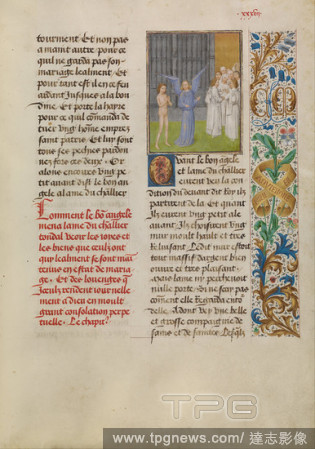 xxxviij
tourment. Et non pas
a maint autre. pour ce
quil ne garda pas son
mariage lealment. Et
pour tant est il en ce feu
ardant Jusques a la bou
dine. Et porte la hayre
pour ce quil commanda de
tuer ung homme empres
saint patris. Et lui sont
tous ses pechies pardon
nez fors ces deux. Or
alons encores ung pe
tit avant dist le bon an
gele a lame du chlier
Comment le bon angele
mena lame du chlier
tondal veoir les ioies et
les biens que ceulx ont
qui lealment se sont main
tenus en estat de maria
ge. Et des louenges que
Iceulx rendent iournelle
ment a dieu en moult
grant consolation perpe
tuelle. Le chapitre
Quant le bon angele
et lame du chlier
eurent veu la con
dition du devant dit Roy ilz
partirent de la. Et quant
Ilz eurent ung petit ale
avant Ilz choisirent ung
mur moult hault et tres
Reluisant. Ledit mur estoit
tout massif dargent bien
ouvre et tres plaisant.
mais lame ny perchevoit
nulle porte. Si ne scay pas
comment elle Regarda ens
delle. Adont vey une belle
et grosse compaignie de
sains et de saintes. Desquelz
TPG
www.tpgnews.com / 達志影像